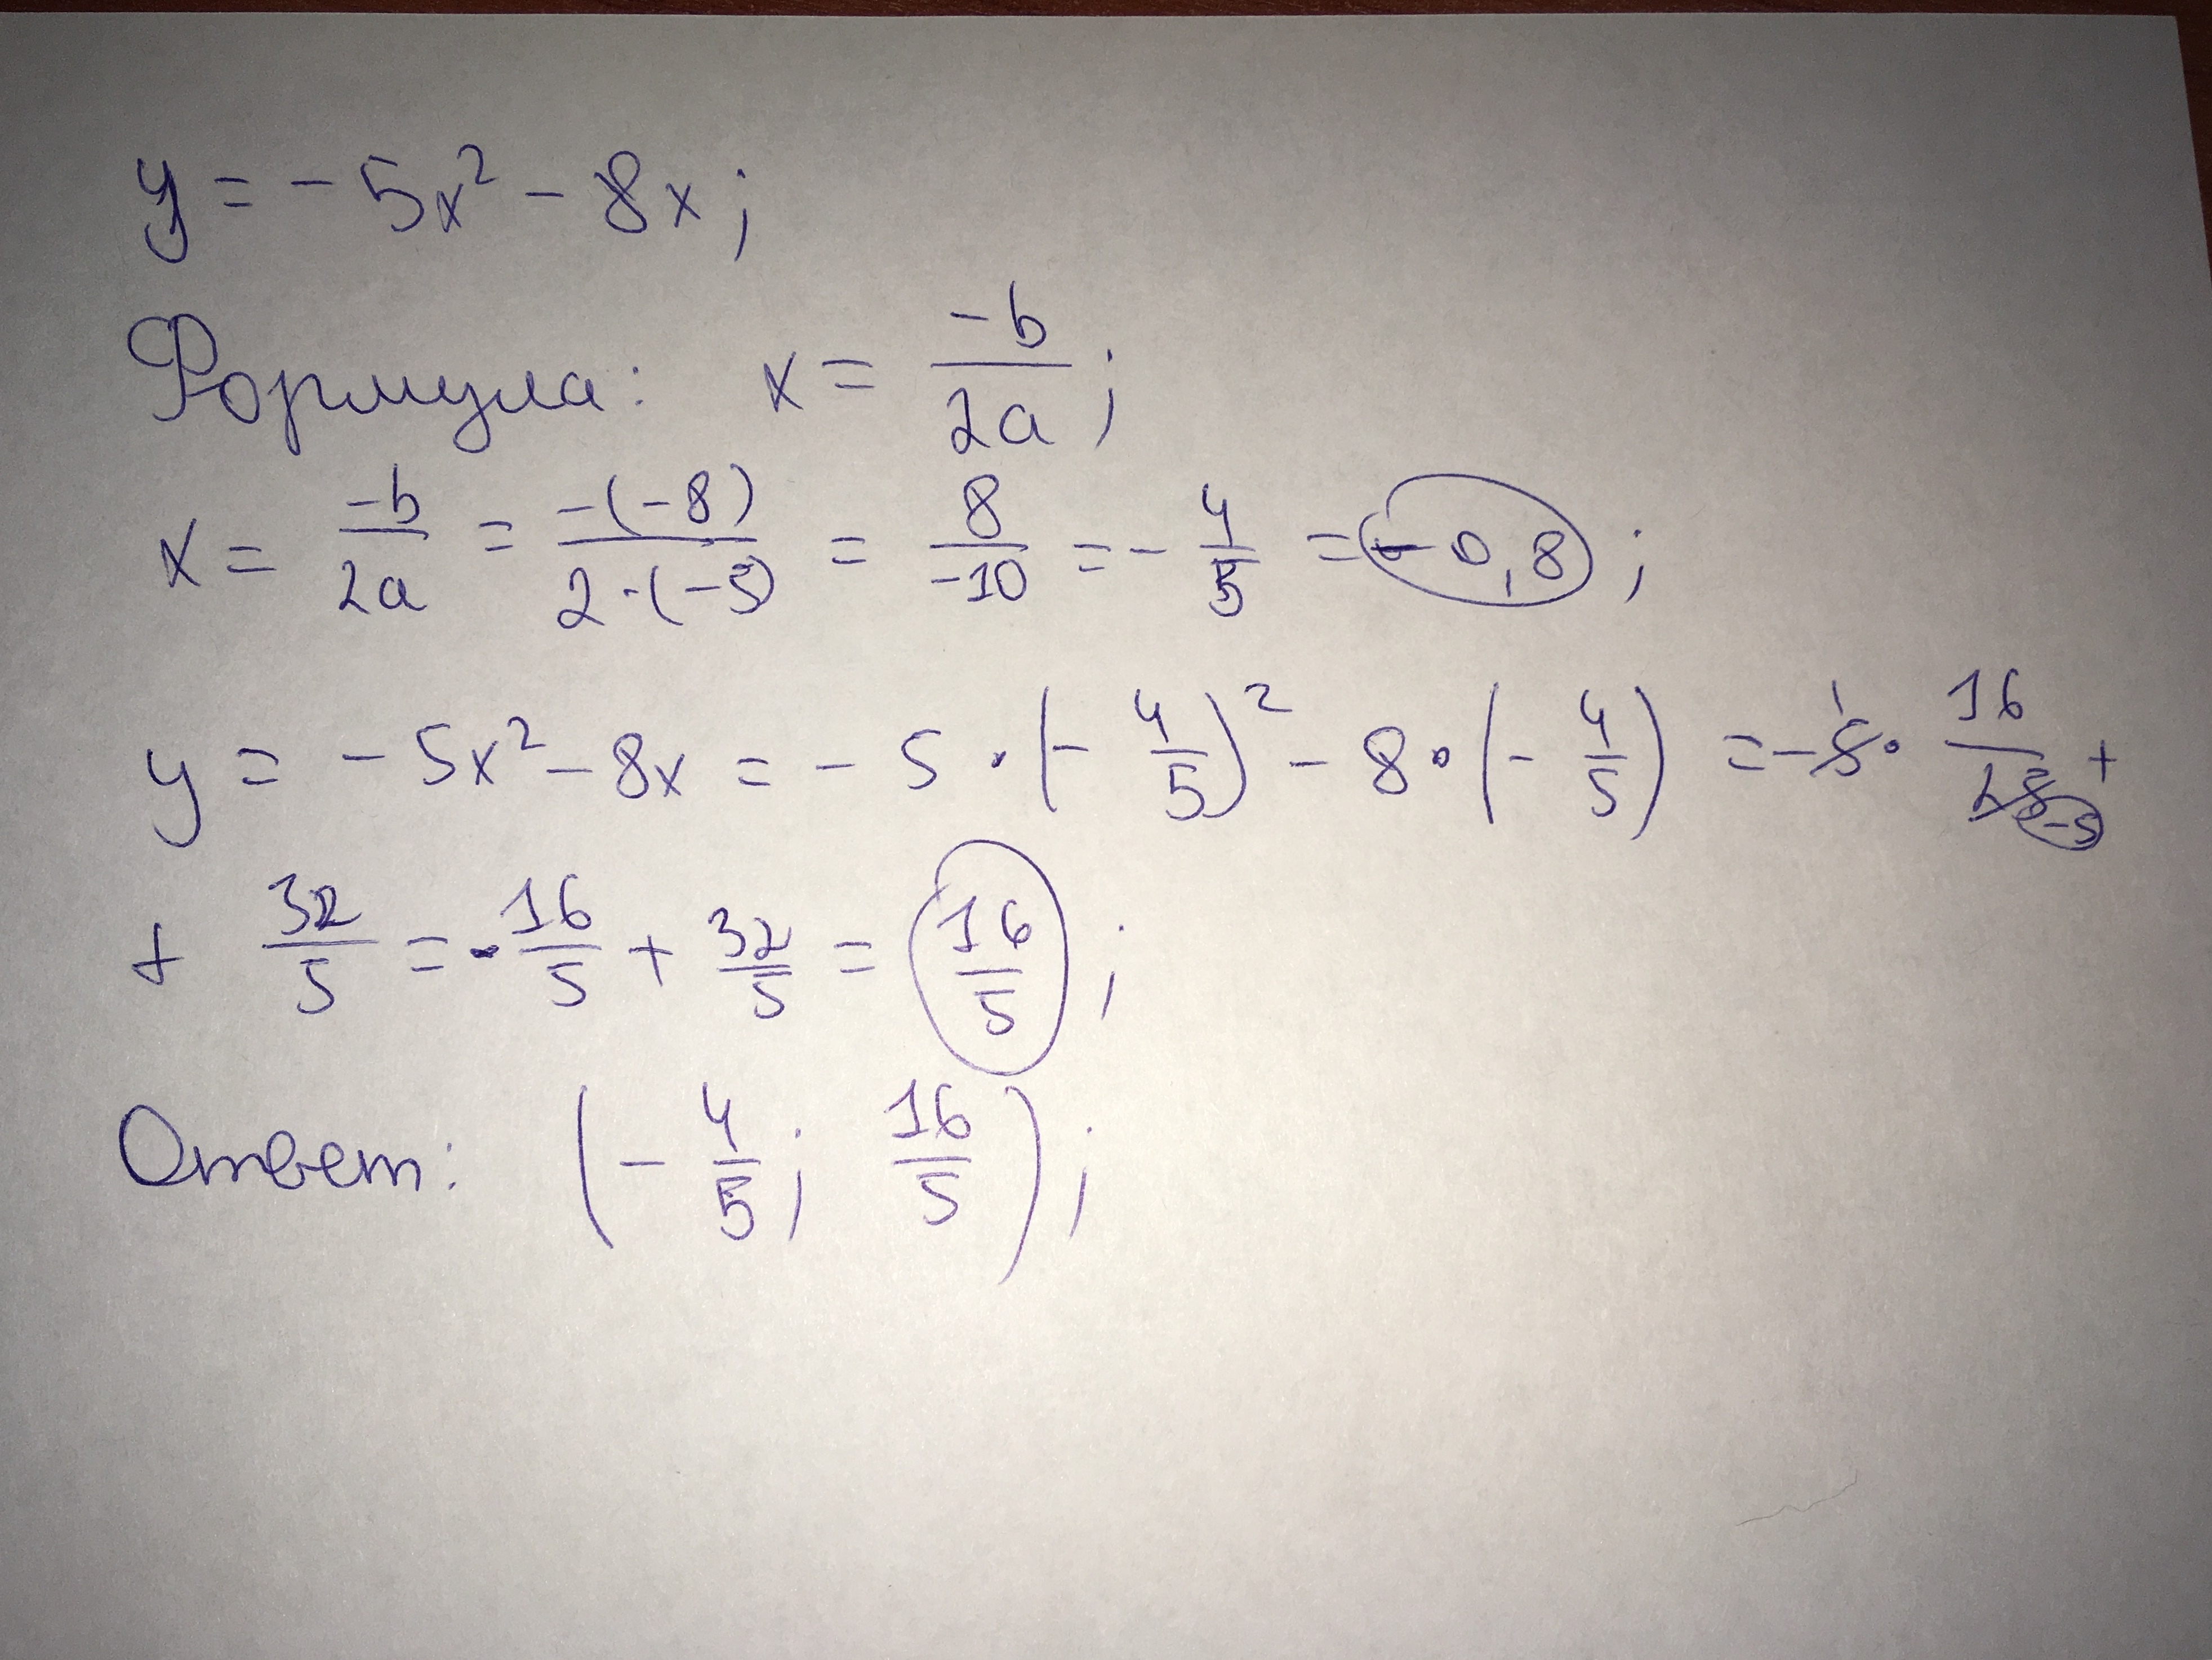 y = -5x² - 8x;
Формула: x = -b/2a;
x = -b/2a = -(-8)/2·(-5) = 8/-10 = -4/5 = -0,8;
y = -5x² - 8x = -5·(-4/5)² - 8·(-4/5) = -5·16/25 +
+ 32/5 = -16/5 + 32/5 = 16/5;
Ответ: (-4/5; 16/5);